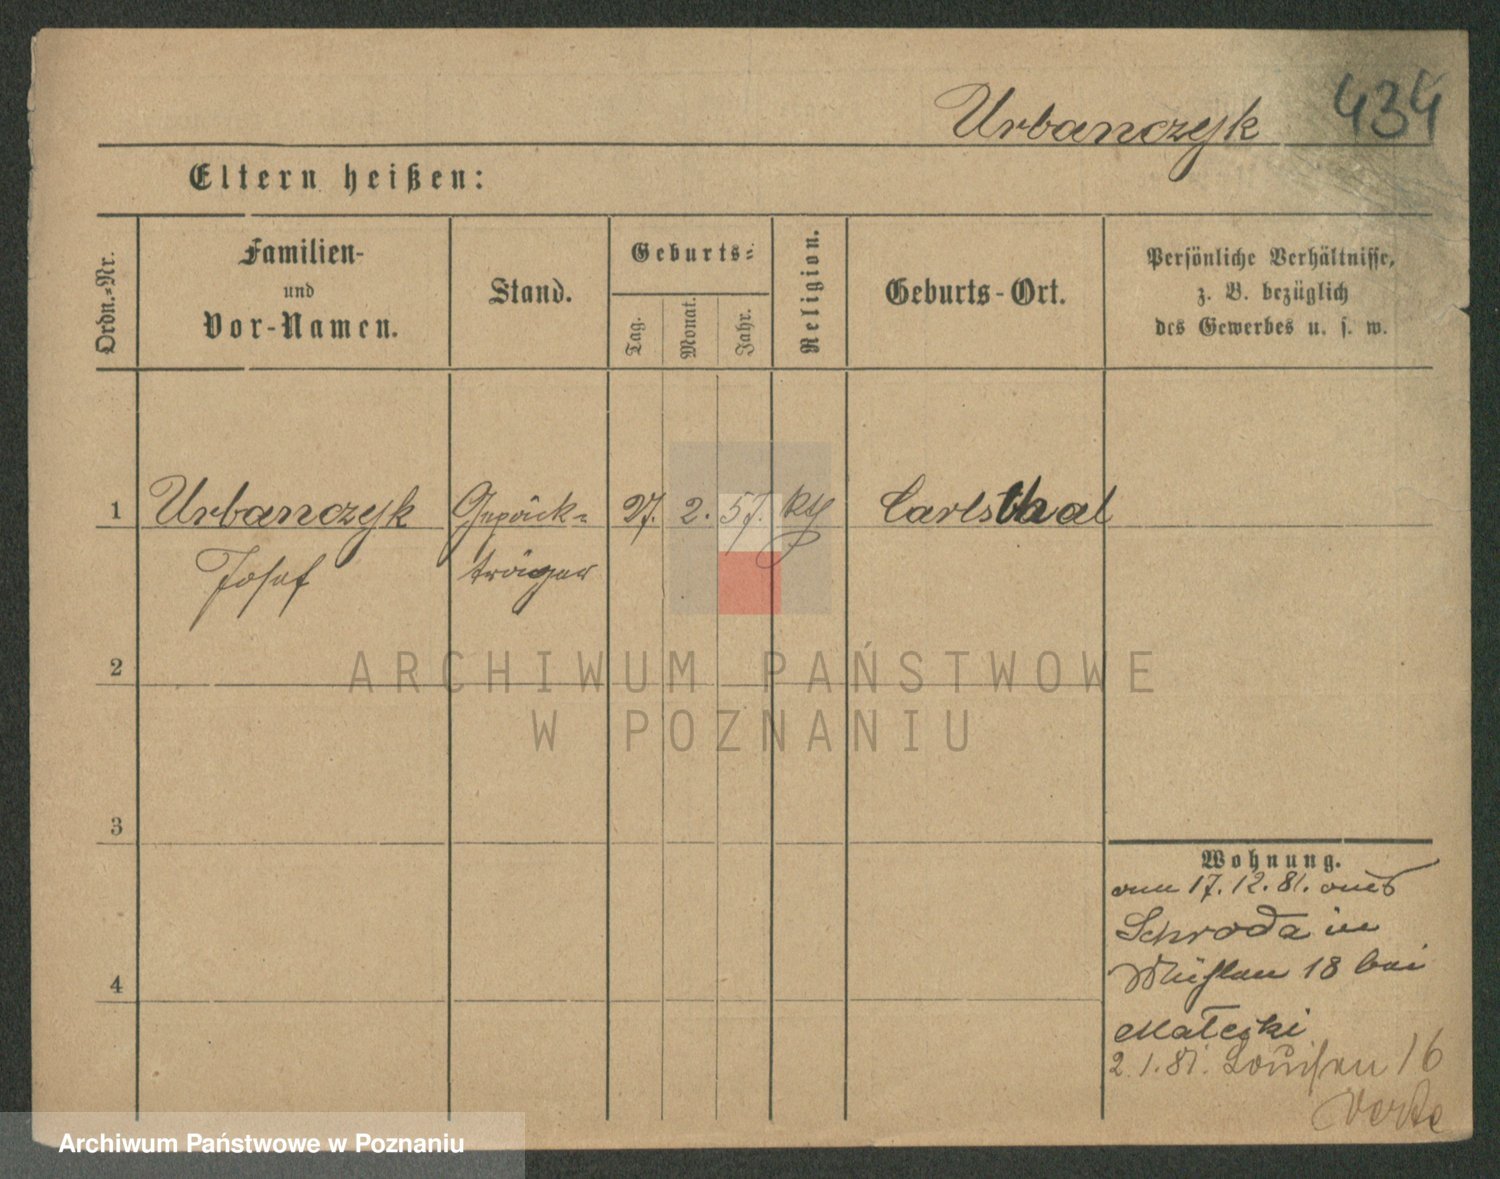 Urbanczyk 434
Eltern heißen:
Ordn.-Nr.
Familien-
und
Vor-Namen.
Stand.
Geburts-
Tag.
Monat.
Jahr.
Religion.
Geburts-Ort.
Persönliche Verhältnisse,
z. B. bezüglich
des Gewerbes u. s. w.
1 Urbanczyk Gepäck- 27. 2. 57. kth Carlsthal
Josef träger
2
ARCHIWUM PAŃSTWOWE
W POZNANIU
3
Wohnung.
am 17. 12. 81. aus
Schroda in
Mühlen 18 bei
Małecki
4
2. 1. 8. Louisen 16
Verte
Archiwum Państwowe w Poznaniu